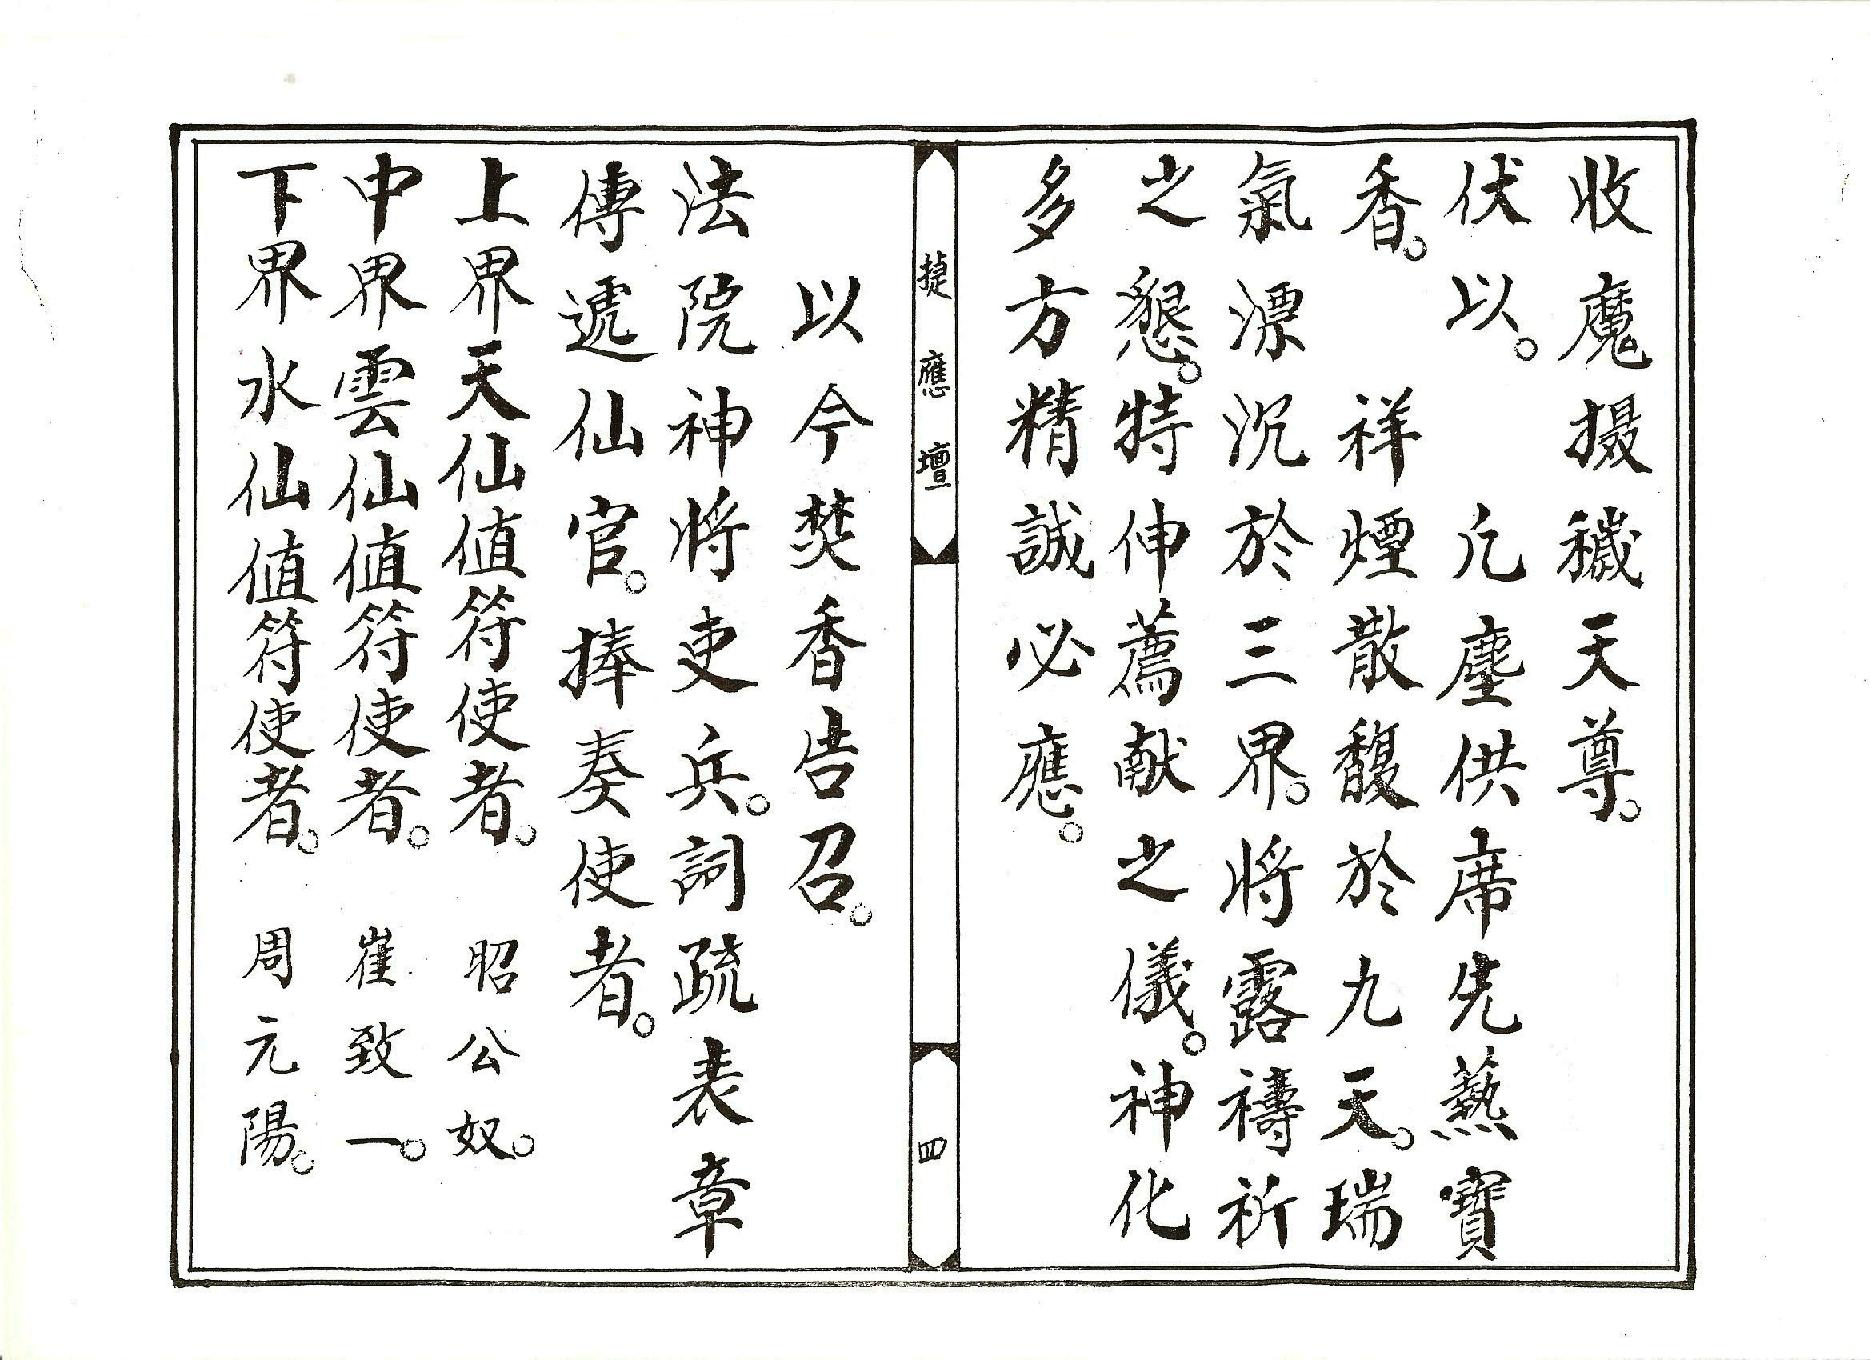 收魔摄穢天尊。
伏以。　凣塵供席先爇寶
香。　祥煙散馥於九天。瑞
氣漂沉於三界。將露禱祈
之懇。特伸薦献之儀。神化
多方精誠必應。
捷應壇
四
以今焚香告召。
法院神將吏兵。詞疏表章
傳遞仙官。捧奏使者。
上界天仙値符使者。　昭公奴。
中界雲仙値符使者。　崔致一。
下界水仙値符使者。　周元陽。